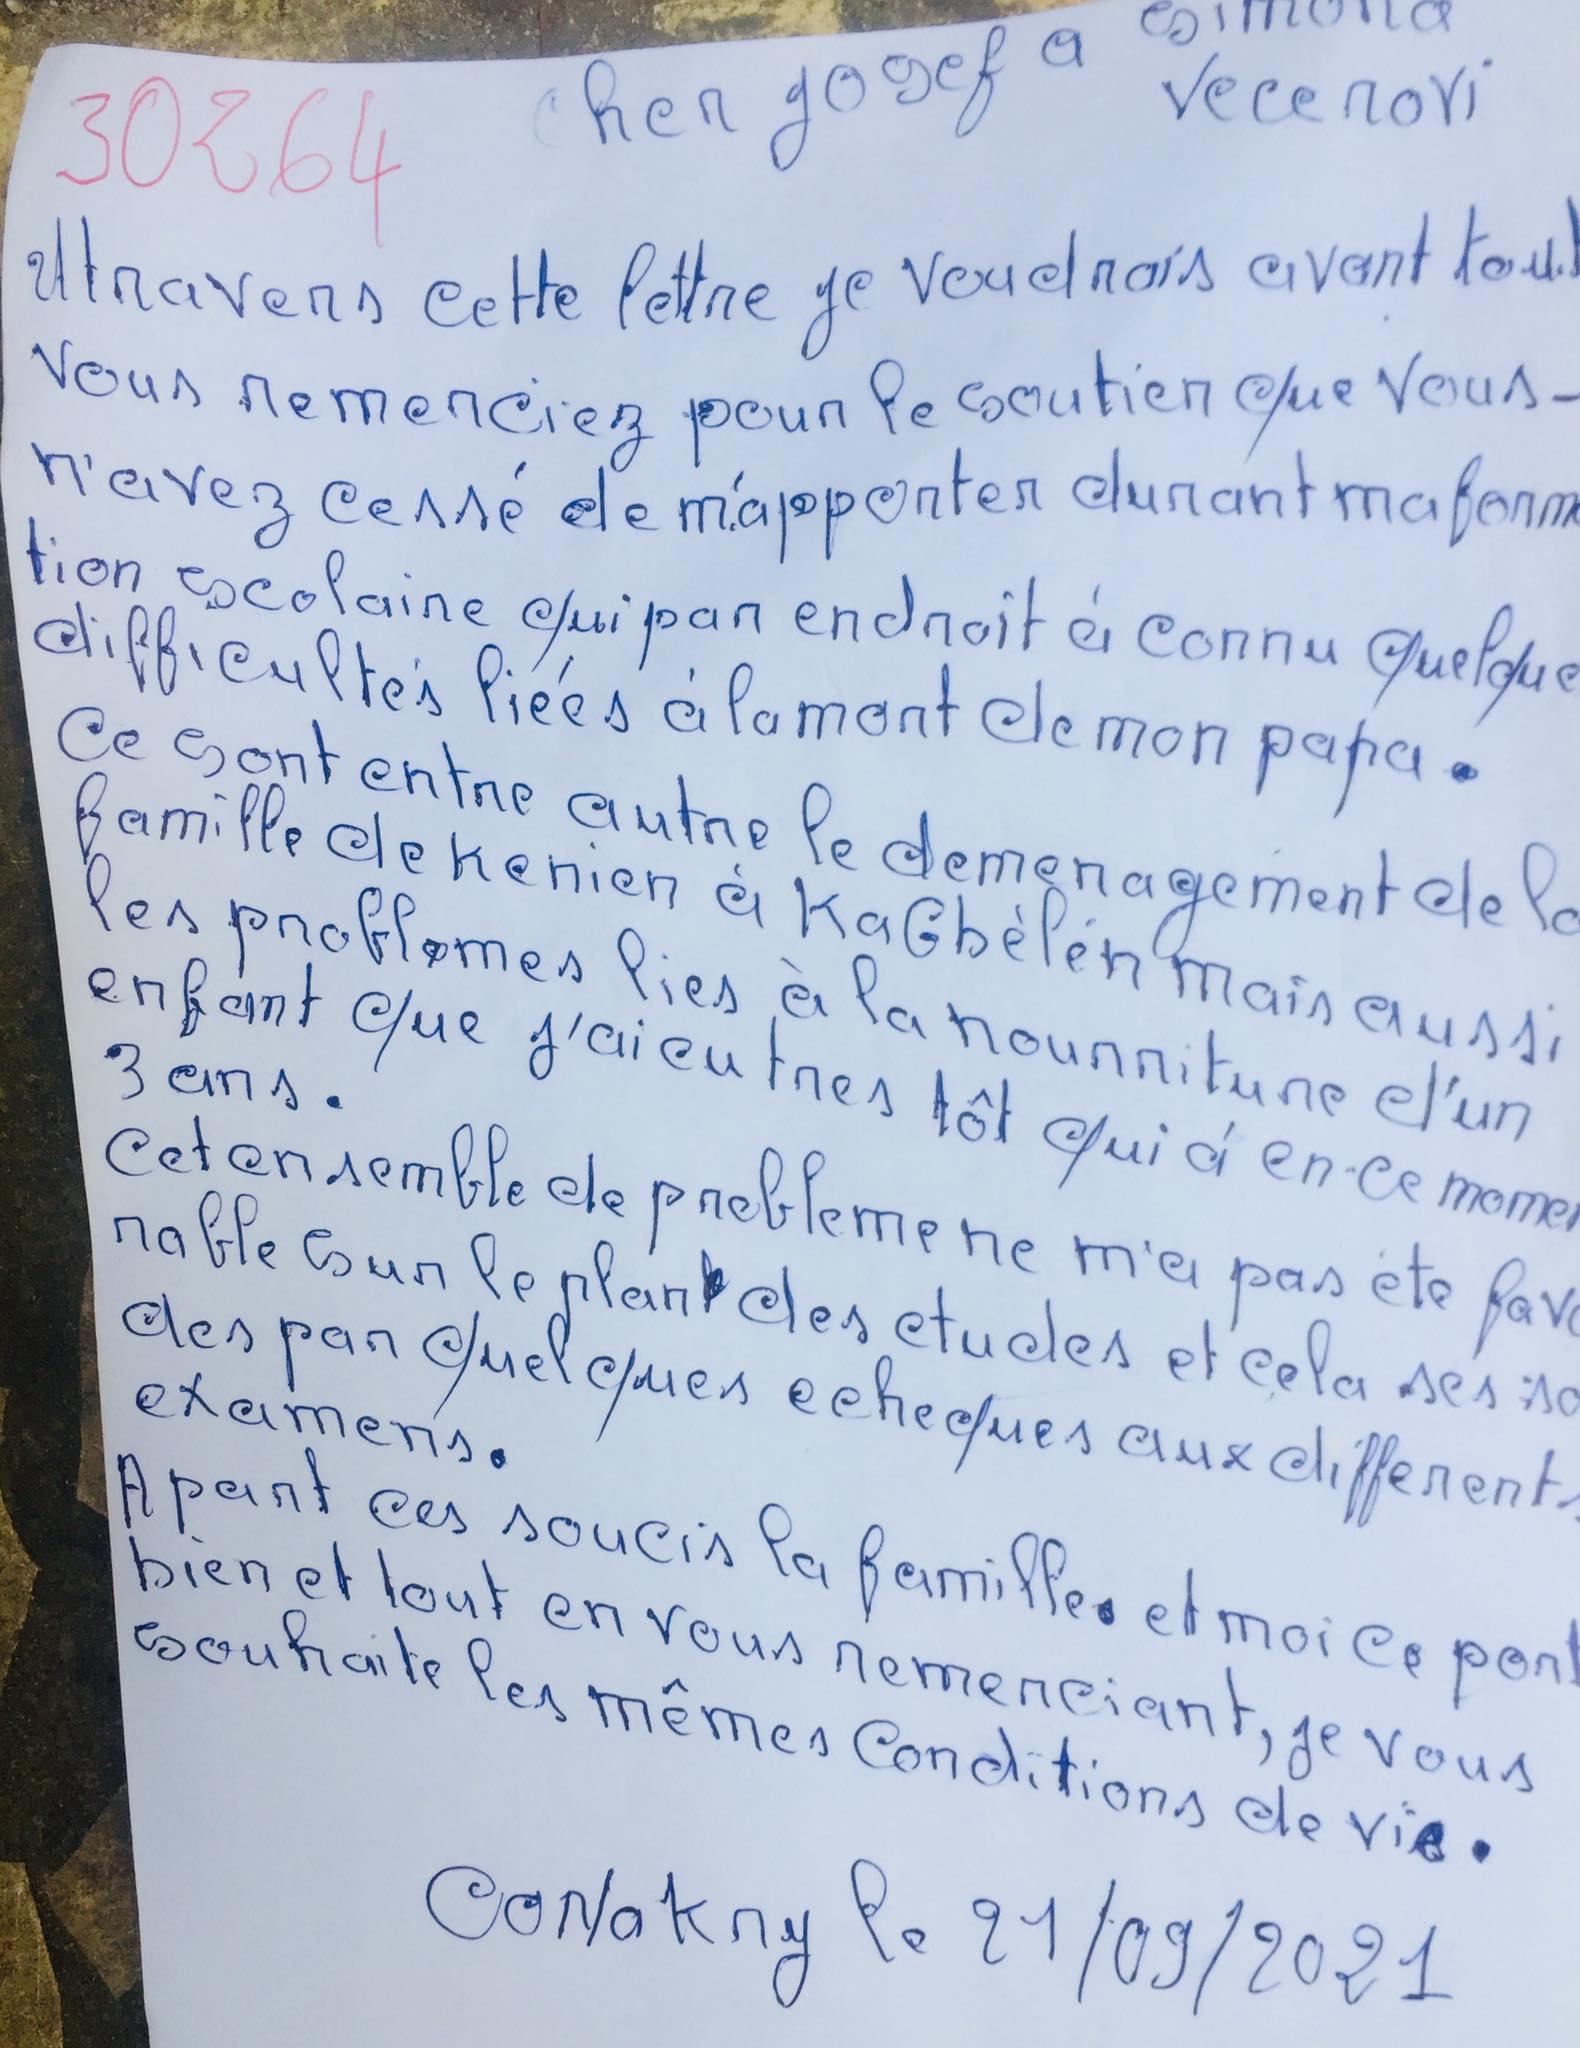 30264
Cher Josef a Simona
Vecerovi
A travers cette lettre je voudrais avant tout
vous remerciez pour le soutien que vous-
n'avez cessé de m'apporter durant ma forma
tion scolaire qui par endroit à connu quelque
difficultés liéés à la mort de mon papa.
Ce sont entre autre le demenagement de la
famille de Kenien à Kagbélén mais aussi
les problemes lies à la nourriture d'un
enfant que j'ai eu tres tôt qui à en ce momen
3 ans.
Cet ensemble de probleme ne m'a pas éte favo
rable sur le plant des etudes et cela ses so
des par quelques echeques aux differents
examens.
A part ces soucis la famille et moi ce port
bien et tout en vous remerciant, je vous
souhaite les mêmes conditions de vie.
Conakry le 21/09/2021